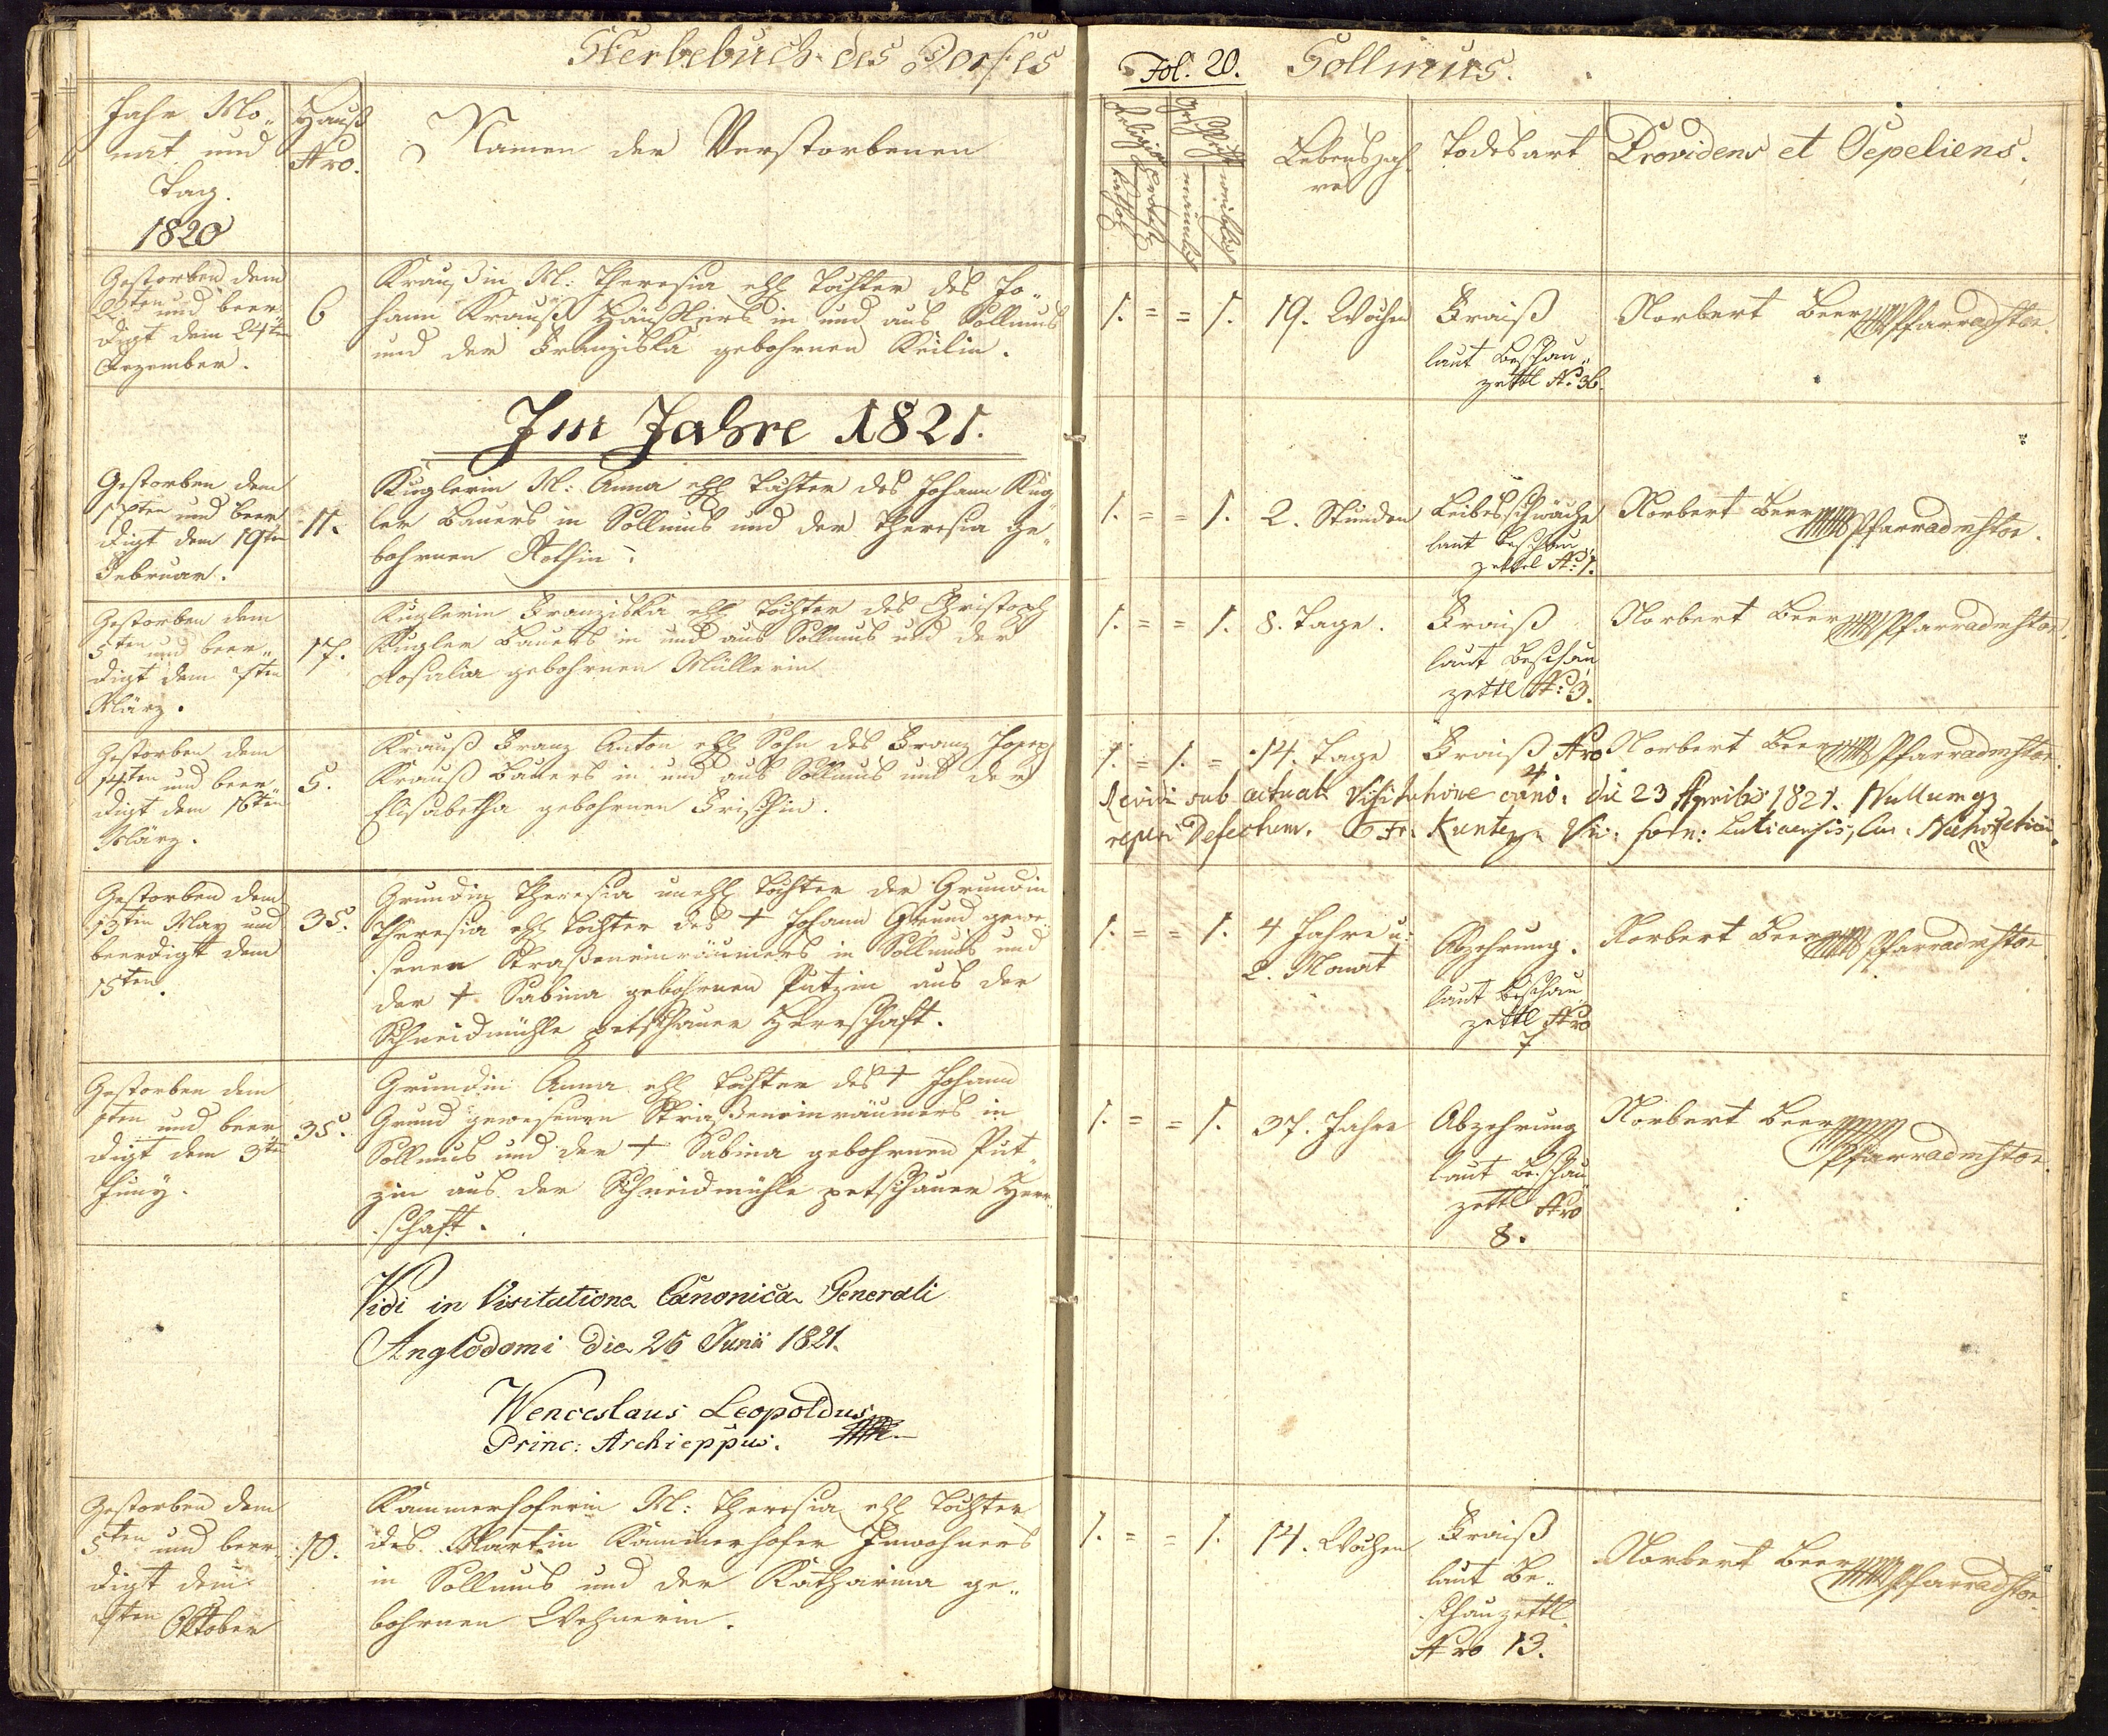 Sterbebuch des Dorfes
Fol. 20. Sollmus.
Jahr Mo„
nat und
Tag.
1820
Hauß
Nro.
Namen der Verstorbenen
Religion
kathol.
Protest.
Geschlecht
männlich
weiblich
Lebensjah
re
Todesart
Providens et Sepeliens.
Gestorben dem
22ten und beer„
digt dem 24ten
Dezember.
6
Kraußin M: Theresia ehl Tochter des Jo„
hann Krauß Häußlers in und aus Sollmus
und der Franziska gebohrnen Keilin.
1. = = 1. 19. Wochen
Fraiß
laut Beschau„
zettl No. 36.
Norbert Beer Pfarradstor.
Im Jahre 1821.
Gestorben dem
17ten und beer
digt dem 19ten
Februar.
11.
Kuglerin M: Anna ehl Tochter des Johann Kug„
ler Bauers in Sollmus und der Theresia ge„
bohrnen Rothin.
1. = = 1. 2. Stunden
Leibesschwäche
laut Beschau„
zettel No: 1.
Norbert Beer Pfarradmstor.
Gestorben dem
5ten und beer„
digt dem 7ten
März.
17.
Kuglerin Franziska ehl Tochter des Christoph
Kugler Bauers in und aus Sollmus und der
Rosalia gebohrnen Müllerin
1. = = 1. 8. Tage.
Fraiß
laut Beschau
zettl No: 3.
Norbert Beer Pfarradmstor.
Gestorben dem
14ten und beer„
digt dem 16ten
März.
5.
Krauß Franz Anton ehl Sohn des Franz Joseph
Krauß Bauers in und aus Sollmus und der
Elisabetha gebohrnen
1. = 1. = 14. Tage Fraiß Nro
4
Norbert Beer Pfarradmstor.
Revidi sub actuali Visitatione cano: die 23 Aprilis 1821. Nullumqz
reperi Defectum. Fr. Vic: forn:
Gestorben dem
13ten May und
beerdigt dem
15ten.
35.
Grundin Theresia unehl Tochter der Grundin
Theresia ehl Tochter des + Johann Grund gewe„
senen Straßeneinräumers in Sollmus und
der + Sabina gebohrnen Putzin aus der
Schneidmühle petschauer Herrschaft.
1. = = 1. 4 Jahre u:
2. Monat
Abzehrung.
laut Beschau
zettl Nro
7
Norbert Beer Pfarradmstor
Gestorben dem
1ten und beer
digt dem 3ten
Juny.
35.
Grundin Anna ehl Tochter des + Johann
Grund gewesenen Straßeneinräumers in
Sollmus und der + Sabina gebohrnen Put„
zin aus der Schneidmühle petschauer Herr„
schaft.
1. = = 1. 37. Jahre
Abzehrung
laut Beschau
zettl Nro
8.
Norbert Beer
Pfarradmstor.
Vidi in Visitatione Canonica Generali
Anglodomi die 26 Junii 1821.
Wenceslaus Leopoldus
Princ: Archieppus.
Gestorben dem
5ten und beer„
digt dem
7ten Oktober
10.
Kammerhoferin M: Theresia ehl Tochter
des Martin Kammerhofer Inwohners
in Sollmus und der Katharina ge„
bohrnen Wehnerin.
1. = = 1. 14. Wochen
Fraiß
laut Be„
schauzettl
Nro 13.
Norbert Beer Pfarradstor.